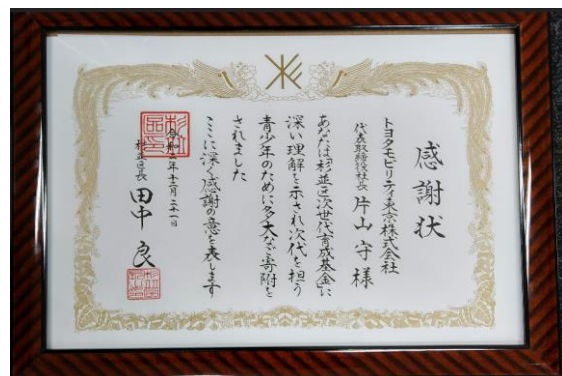 感謝状
トヨタモビリティ東京株式会社
代表取締役社長 片山 守 様
あなたは「杉並区次世代育成基金」に
深い理解を示され次代を担う
青少年のために多大なご寄附を
されました
ここに深く感謝の意を表します
令和二年十二月二十一日
杉並区長 田中 良